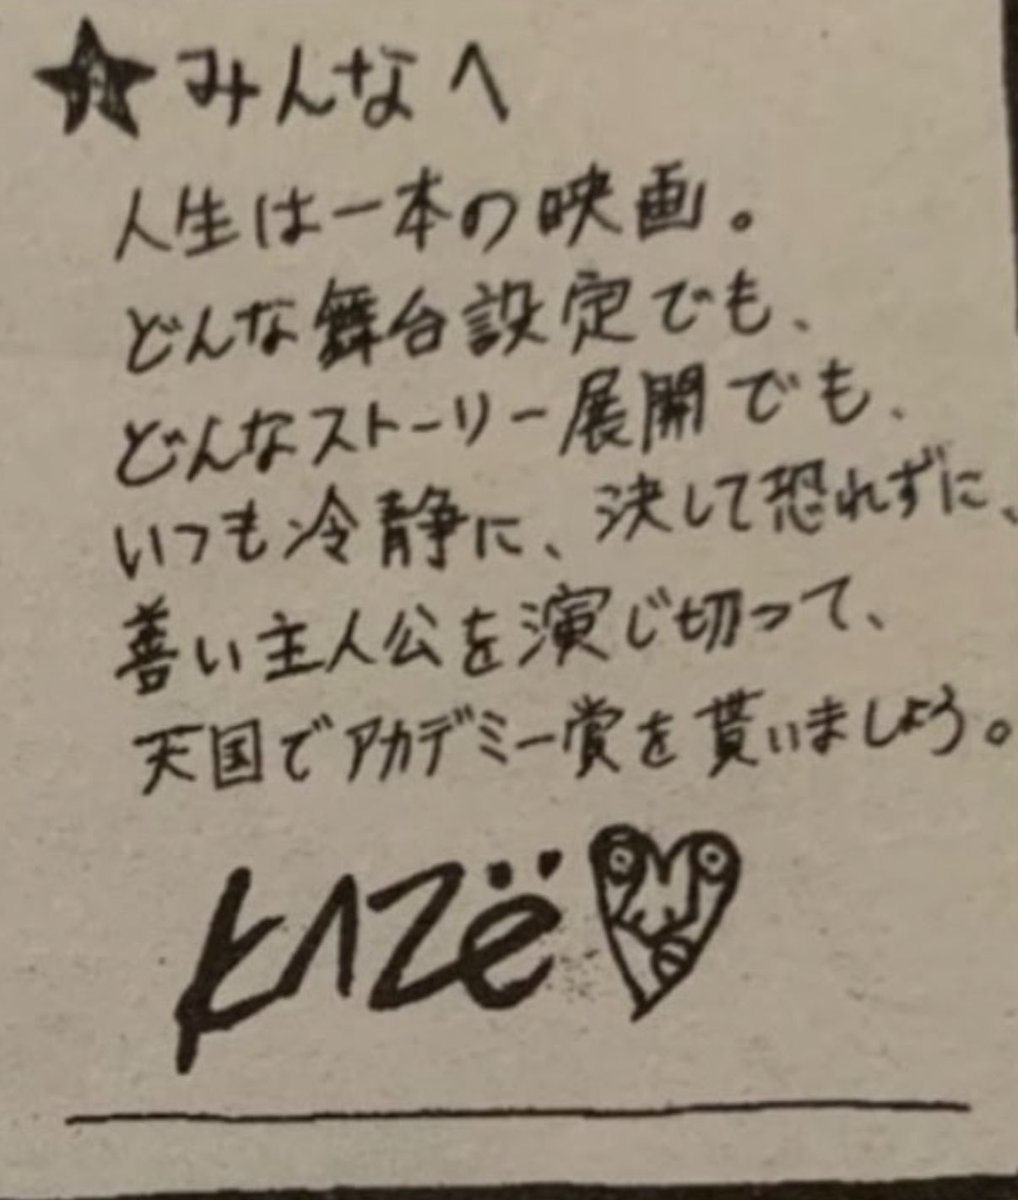 ★みんなへ
人生は一本の映画。
どんな舞台設定でも、
どんなストーリー展開でも、
いつも冷静に、決して恐れずに、
善い主人公を演じ切って、
天国でアカデミー賞を貰いましょう。
KAZë